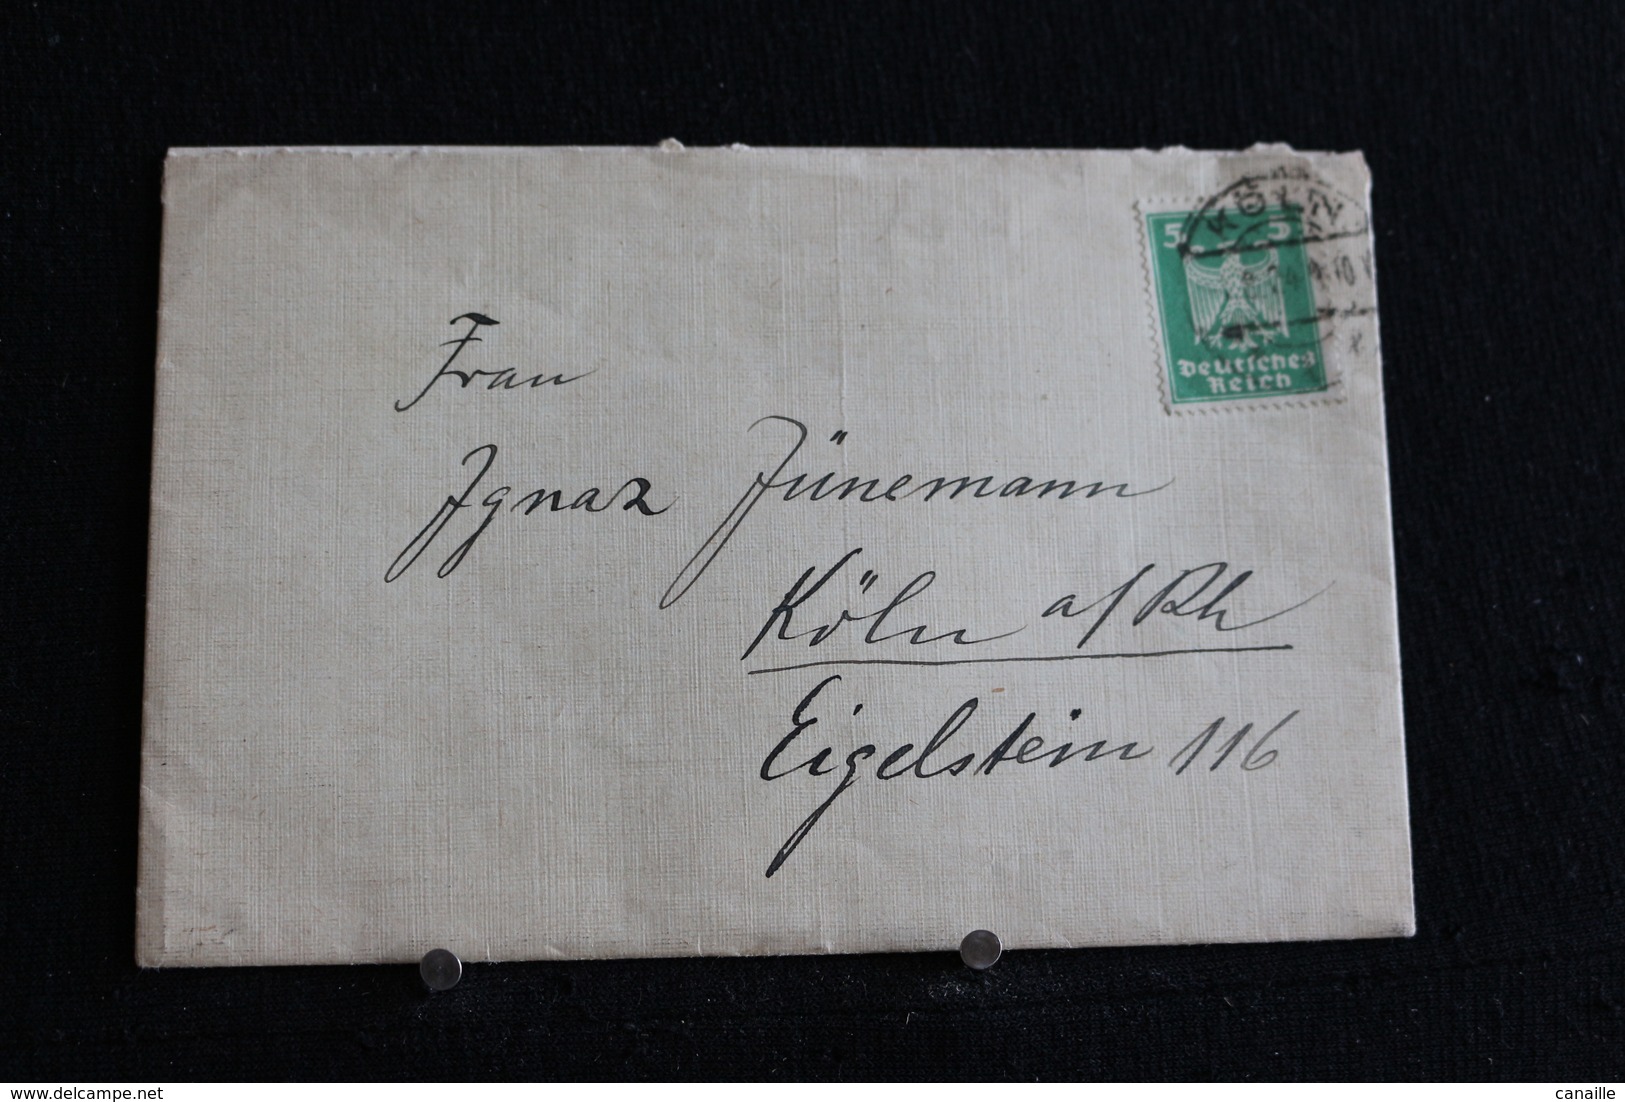 KÖLN
5 5
Deutsches
Reich
Frau
Ignaz Jünemann
Köln a/Rh
Eigelstein 116
delcampe.net
canaille